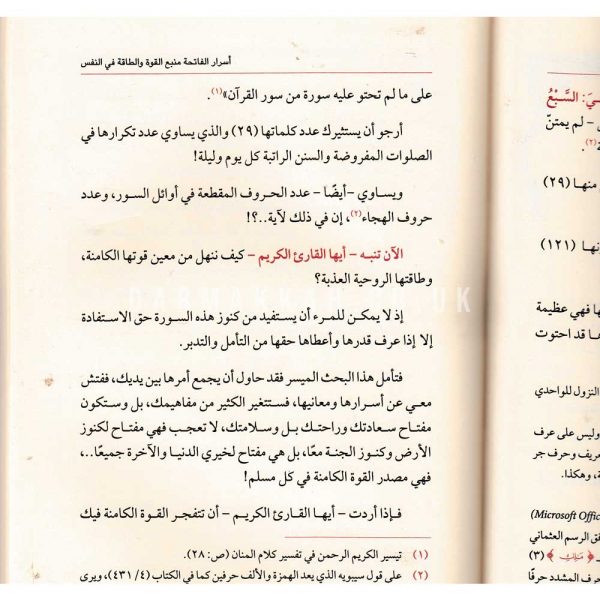 أسرار الفاتحة منبع القوة والطاقة في النفس
على ما لم تحتو عليه سورة من سور القرآن»(١).
أرجو أن يستثيرك عدد كلماتها (٢٩) والذي يساوي عدد تكرارها في
الصلوات المفروضة والسنن الراتبة كل يوم وليلة!
ويساوي –أيضًا– عدد الحروف المقطعة في أوائل السور، وعدد
حروف الهجاء(٢)، إن في ذلك لآية..؟!
الآن تنبه – أيها القارئ الكريم – كيف ننهل من معين قوتها الكامنة،
وطاقتها الروحية العذبة؟
إذ لا يمكن للمرء أن يستفيد من كنوز هذه السورة حق الاستفادة
إلا إذا عرف قدرها وأعطاها حقها من التأمل والتدبر.
فتأمل هذا البحث الميسر فقد حاول أن يجمع أمرها بين يديك، ففتش
معي عن أسرارها ومعانيها، فستتغير الكثير من مفاهيمك، بل وستكون
مفتاح سعادتك وراحتك بل وسلامتك، لا تعجب فهي مفتاح لكنوز
الأرض وكنوز الجنة معًا، بل هي مفتاح لخيري الدنيا والآخرة جميعًا..،
فهي مصدر القوة الكامنة في كل مسلم!
فإذا أردت – أيها القارئ الكريم – أن تتفجر القوة الكامنة فيك
(١) تيسير الكريم الرحمن في تفسير كلام المنان (ص: ٢٨).
(٢) على قول سيبويه الذي يعد الهمزة والألف حرفين كما في الكتاب (٤/ ٤٣١)، ويرى
يَ: السَّبْعُ
– لم يمتنّ
(٢).
منها (٢٩)
نها (١٢١)
ها فهي عظيمة
ها قد احتوت
النزول للواحدي
وليس على عرف
عريف وحرف جر
ة، وهكذا.
(Microsoft Offic
فق الرسم العثماني
(٣)
حرف المشدد حرفًا